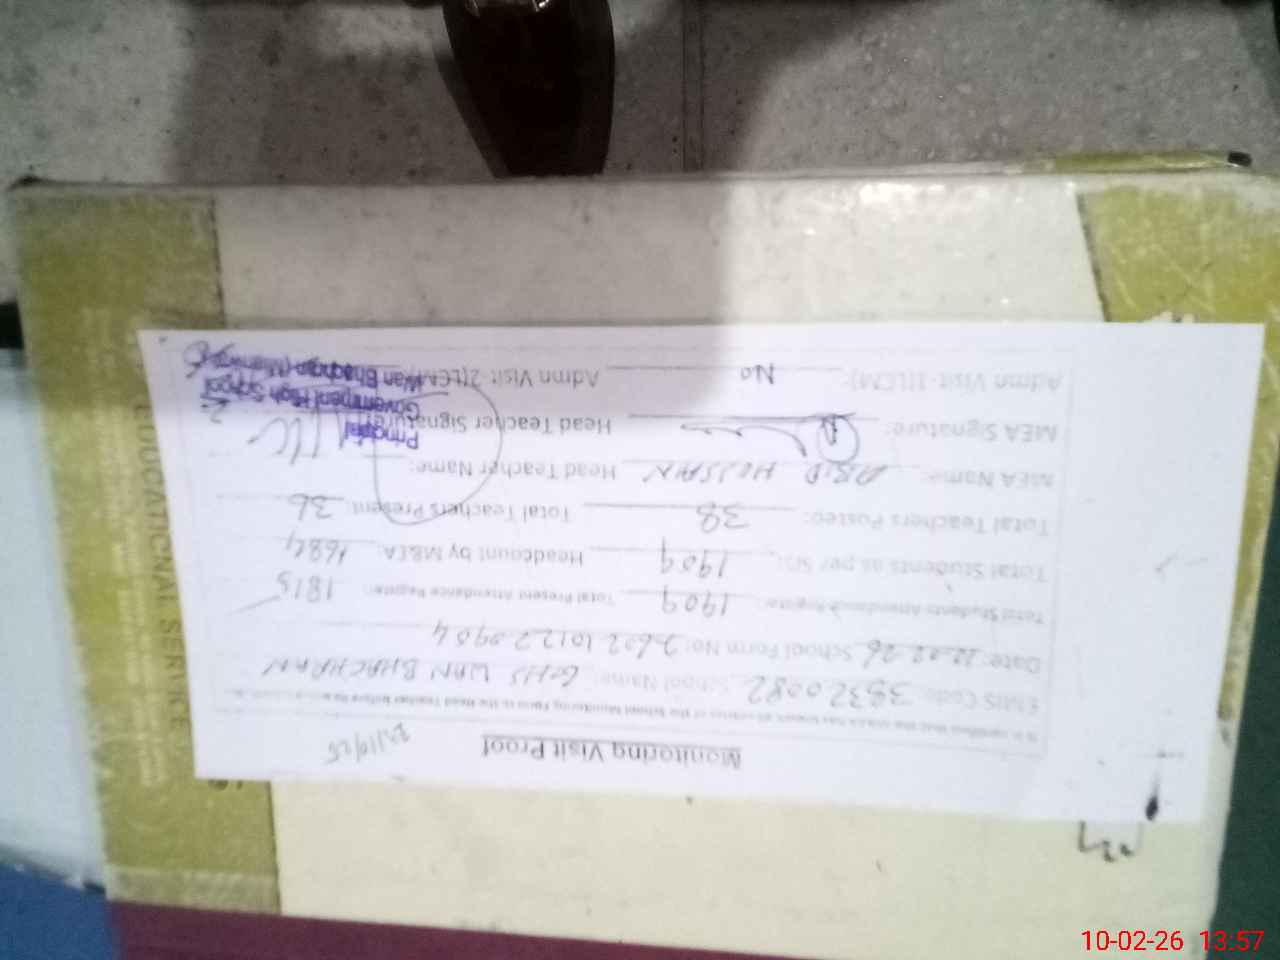 Monitoring Visit Proof
It is certified that the MEA has shown all entries of the School Monitoring Form to the Head Teacher before
EMIS Code: 38320082 School Name: GHS WAN BHACHRAN
Date: 10.02.26 School Form No: 2602101220904
Total Students Attendance Register: 1909 Total Present Attendance Register: 1815
Total Students as per SIS: 1909 Headcount by MEA: 1684
Total Teachers Posted: 38 Total Teachers Present: 36
MEA Name: ABID HUSSAIN Head Teacher Name:
MEA Signature: Head Teacher Signature:
Admn Visit-1(LCM): No Admn Visit 2(LCM)
Principal
Government High School
Wan Bhachran (Mianwali)
EDUCATIONAL SERVICE
10-02-26 13:57